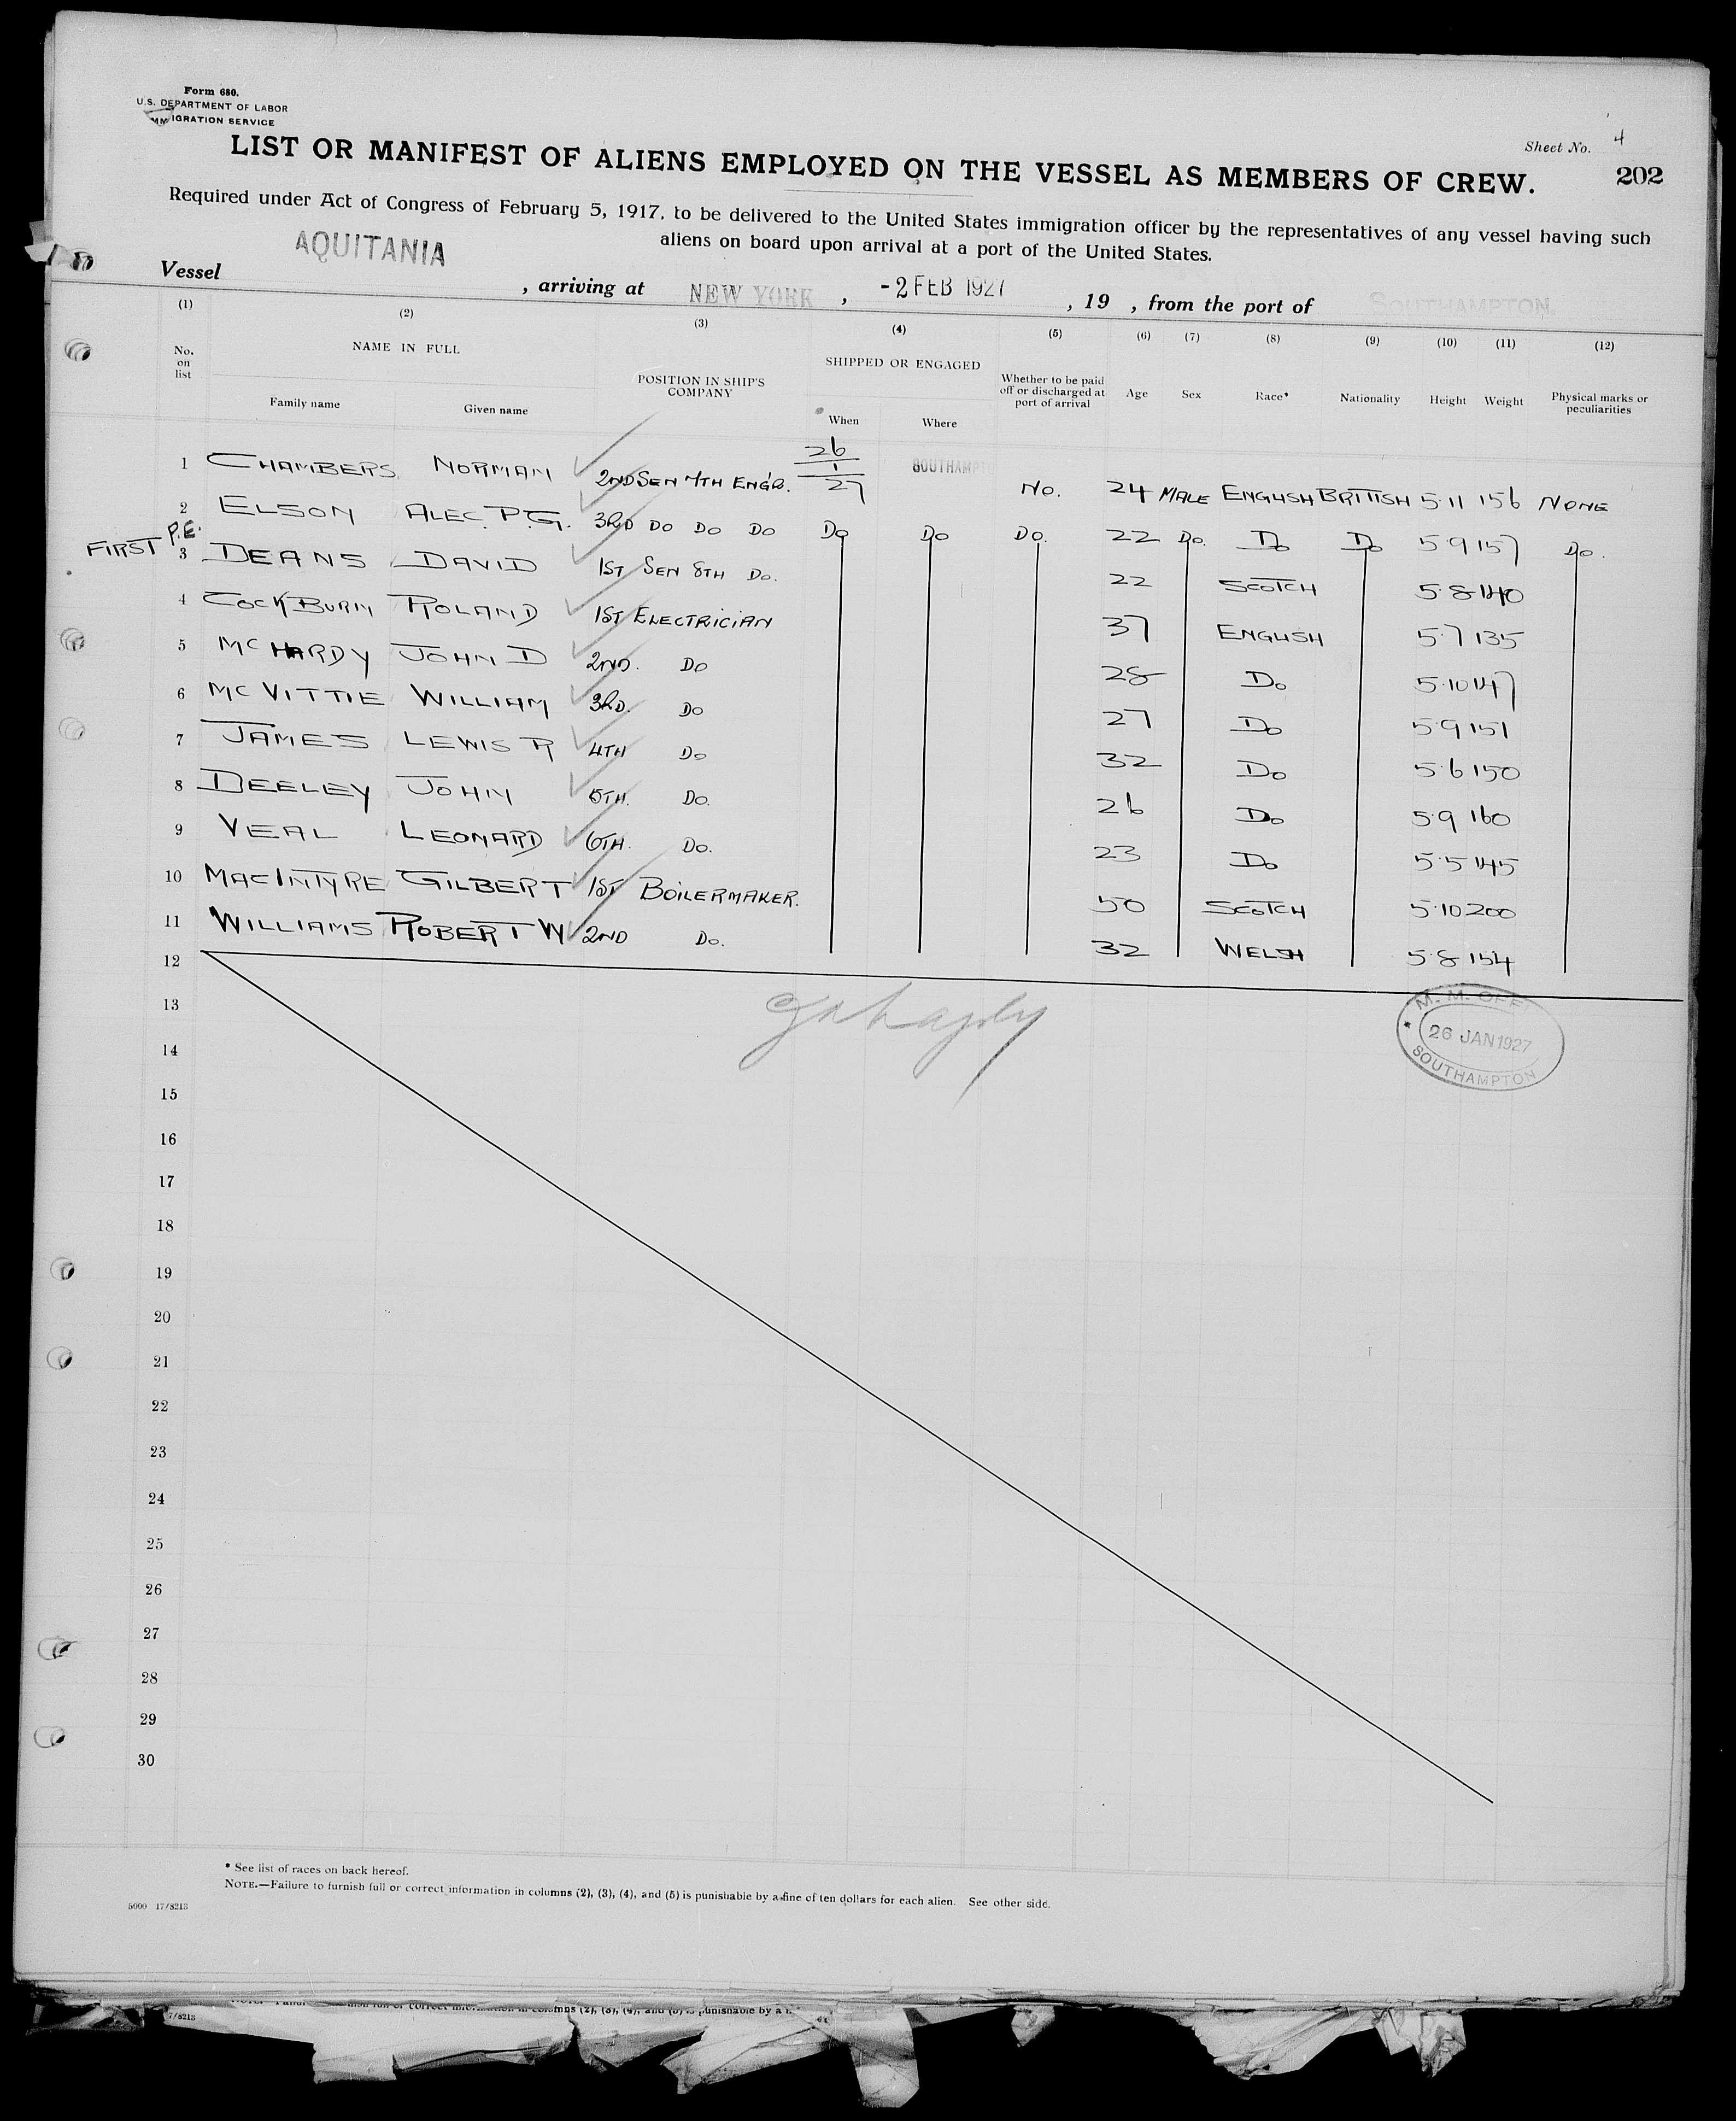 Form 680.
U.S. DEPARTMENT OF LABOR
IMMIGRATION SERVICE
Sheet No. 4
LIST OR MANIFEST OF ALIENS EMPLOYED ON THE VESSEL AS MEMBERS OF CREW.
202
Required under Act of Congress of February 5, 1917, to be delivered to the United States immigration officer by the representatives of any vessel having such
aliens on board upon arrival at a port of the United States.
Vessel AQUITANIA, arriving at NEW YORK, -2 FEB 1927, 19 , from the port of SOUTHAMPTON
(1) (2) (3) (4) (5) (6) (7) (8) (9) (10) (11) (12)
No. on list NAME IN FULL Family name Given name POSITION IN SHIP'S COMPANY SHIPPED OR ENGAGED When Where Whether to be paid off or discharged at port of arrival Age Sex Race* Nationality Height Weight Physical marks or peculiarities
1 CHAMBERS NORMAN 2ND SEN 7TH ENG'R. 26/1/27 SOUTHAMPT No. 24 MALE ENGLISH BRITISH 5·11 156 NONE
2 ELSON ALEC. P.G. 3RD DO DO DO DO DO DO. 22 DO. DO DO 5·9 157 DO.
FIRST P.E. 3 DEANS DAVID 1ST SEN 8TH DO. 22 SCOTCH 5·8 140
4 COCKBURN ROLAND 1ST ELECTRICIAN 37 ENGLISH 5·7 135
5 MCHARDY JOHN D 2ND. DO 28 DO 5·10 147
6 MCVITTIE WILLIAM 3RD. DO 27 DO 5·9 151
7 JAMES LEWIS R 4TH DO 32 DO 5·6 150
8 DEELEY JOHN 5TH. DO. 26 DO 5·9 160
9 VEAL LEONARD 6TH. DO. 23 DO 5·5 145
10 MACINTYRE GILBERT 1ST BOILERMAKER. 50 SCOTCH 5·10 200
11 WILLIAMS ROBERT W 2ND DO. 32 WELSH 5·8 154
12
13
M. M. OFF
26 JAN 1927
SOUTHAMPTON
14
15
16
17
18
19
20
21
22
23
24
25
26
27
28
29
30
* See list of races on back hereof.
NOTE.—Failure to furnish full or correct information in columns (2), (3), (4), and (5) is punishable by a fine of ten dollars for each alien. See other side.
5000 17/8213